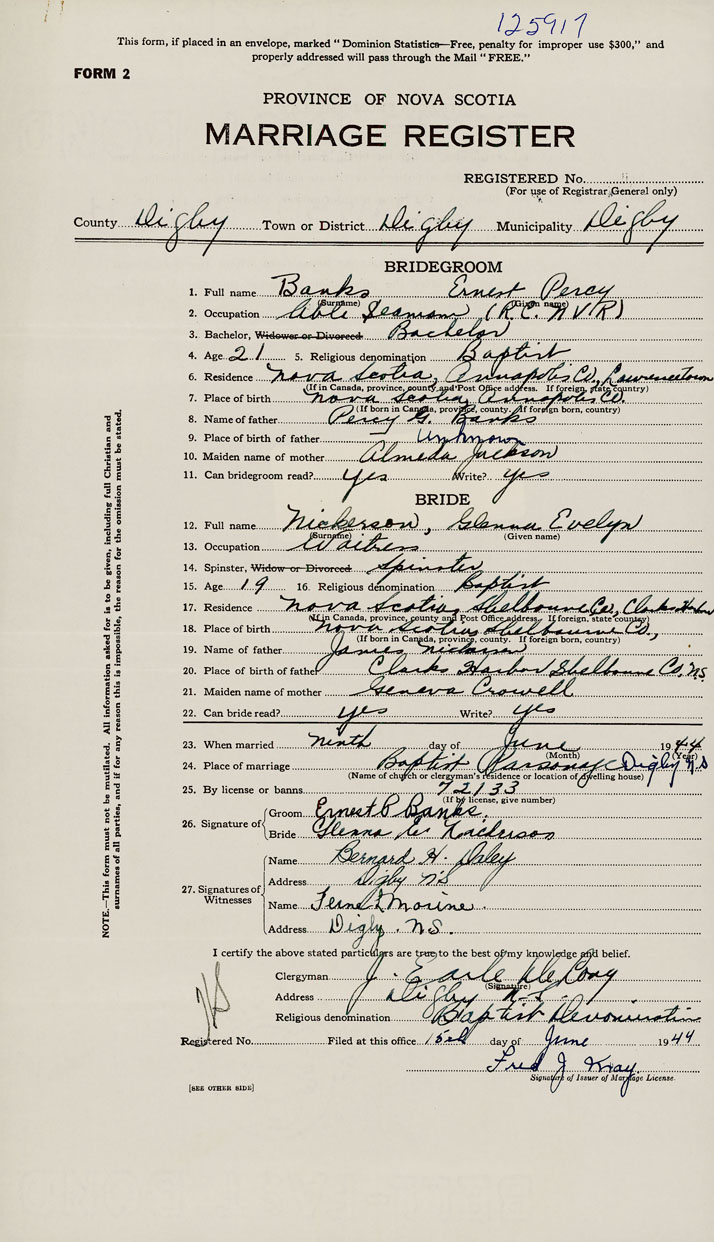 125917
This form, if placed in an envelope, marked "Dominion Statistics—Free, penalty for improper use $300," and
properly addressed will pass through the Mail "FREE."
FORM 2
PROVINCE OF NOVA SCOTIA
MARRIAGE REGISTER
REGISTERED No.
(For use of Registrar General only)
County Digby Town or District Digby Municipality Digby
BRIDEGROOM
1. Full name Banks Ernest Percy
(Surname) (Given name)
2. Occupation Able Seaman (R.C.N.V.R)
3. Bachelor, Widower or Divorced Bachelor
4. Age 21 5. Religious denomination Baptist
6. Residence Nova Scotia, Annapolis Co., Lawrencetown
(If in Canada, province, county and Post Office address. If foreign, state country)
7. Place of birth Nova Scotia, Annapolis Co.
(If born in Canada, province, county. If foreign born, country)
8. Name of father Percy G. Banks
9. Place of birth of father Unknown
10. Maiden name of mother Almeda Jackson
11. Can bridegroom read? yes Write? yes
BRIDE
12. Full name Nickerson, Glenna Evelyn
(Surname) (Given name)
13. Occupation Waitress
14. Spinster, Widow or Divorced Spinster
15. Age 19 16. Religious denomination Baptist
17. Residence Nova Scotia, Shelbourne Co., Clarks Harbor
(If in Canada, province, county and Post Office address. If foreign, state country)
18. Place of birth Nova Scotia, Shelbourne Co.,
(If born in Canada, province, county. If foreign born, country)
19. Name of father James Nickerson
20. Place of birth of father Clarks Harbor Shelbourne Co, N.S.
21. Maiden name of mother Geneva Crowell
22. Can bride read? yes Write? yes
23. When married ninth day of June 1944
(Month) (Year)
24. Place of marriage Baptist Parsonage Digby N.S
(Name of church or clergyman's residence or location of dwelling house)
25. By license or banns 72133
(If by license, give number)
26. Signature of Groom Ernest P Banks.
Bride Glenna E. Nickerson
27. Signatures of Witnesses
Name Bernard H.
Address Digby NS
Name Morine
Address Digby. N.S.
I certify the above stated particulars are true to the best of my knowledge and belief.
Clergyman J. Earle
(Signature)
Address Digby N.S.
Religious denomination Baptist
Registered No. Filed at this office 15th day of June 1944
Fred J
Signature of Issuer of Marriage License.
[SEE OTHER SIDE]
NOTE.—This form must not be mutilated. All information asked for is to be given, including full Christian and
surnames of all parties, and if for any reason this is impossible, the reason for the omission must be stated.